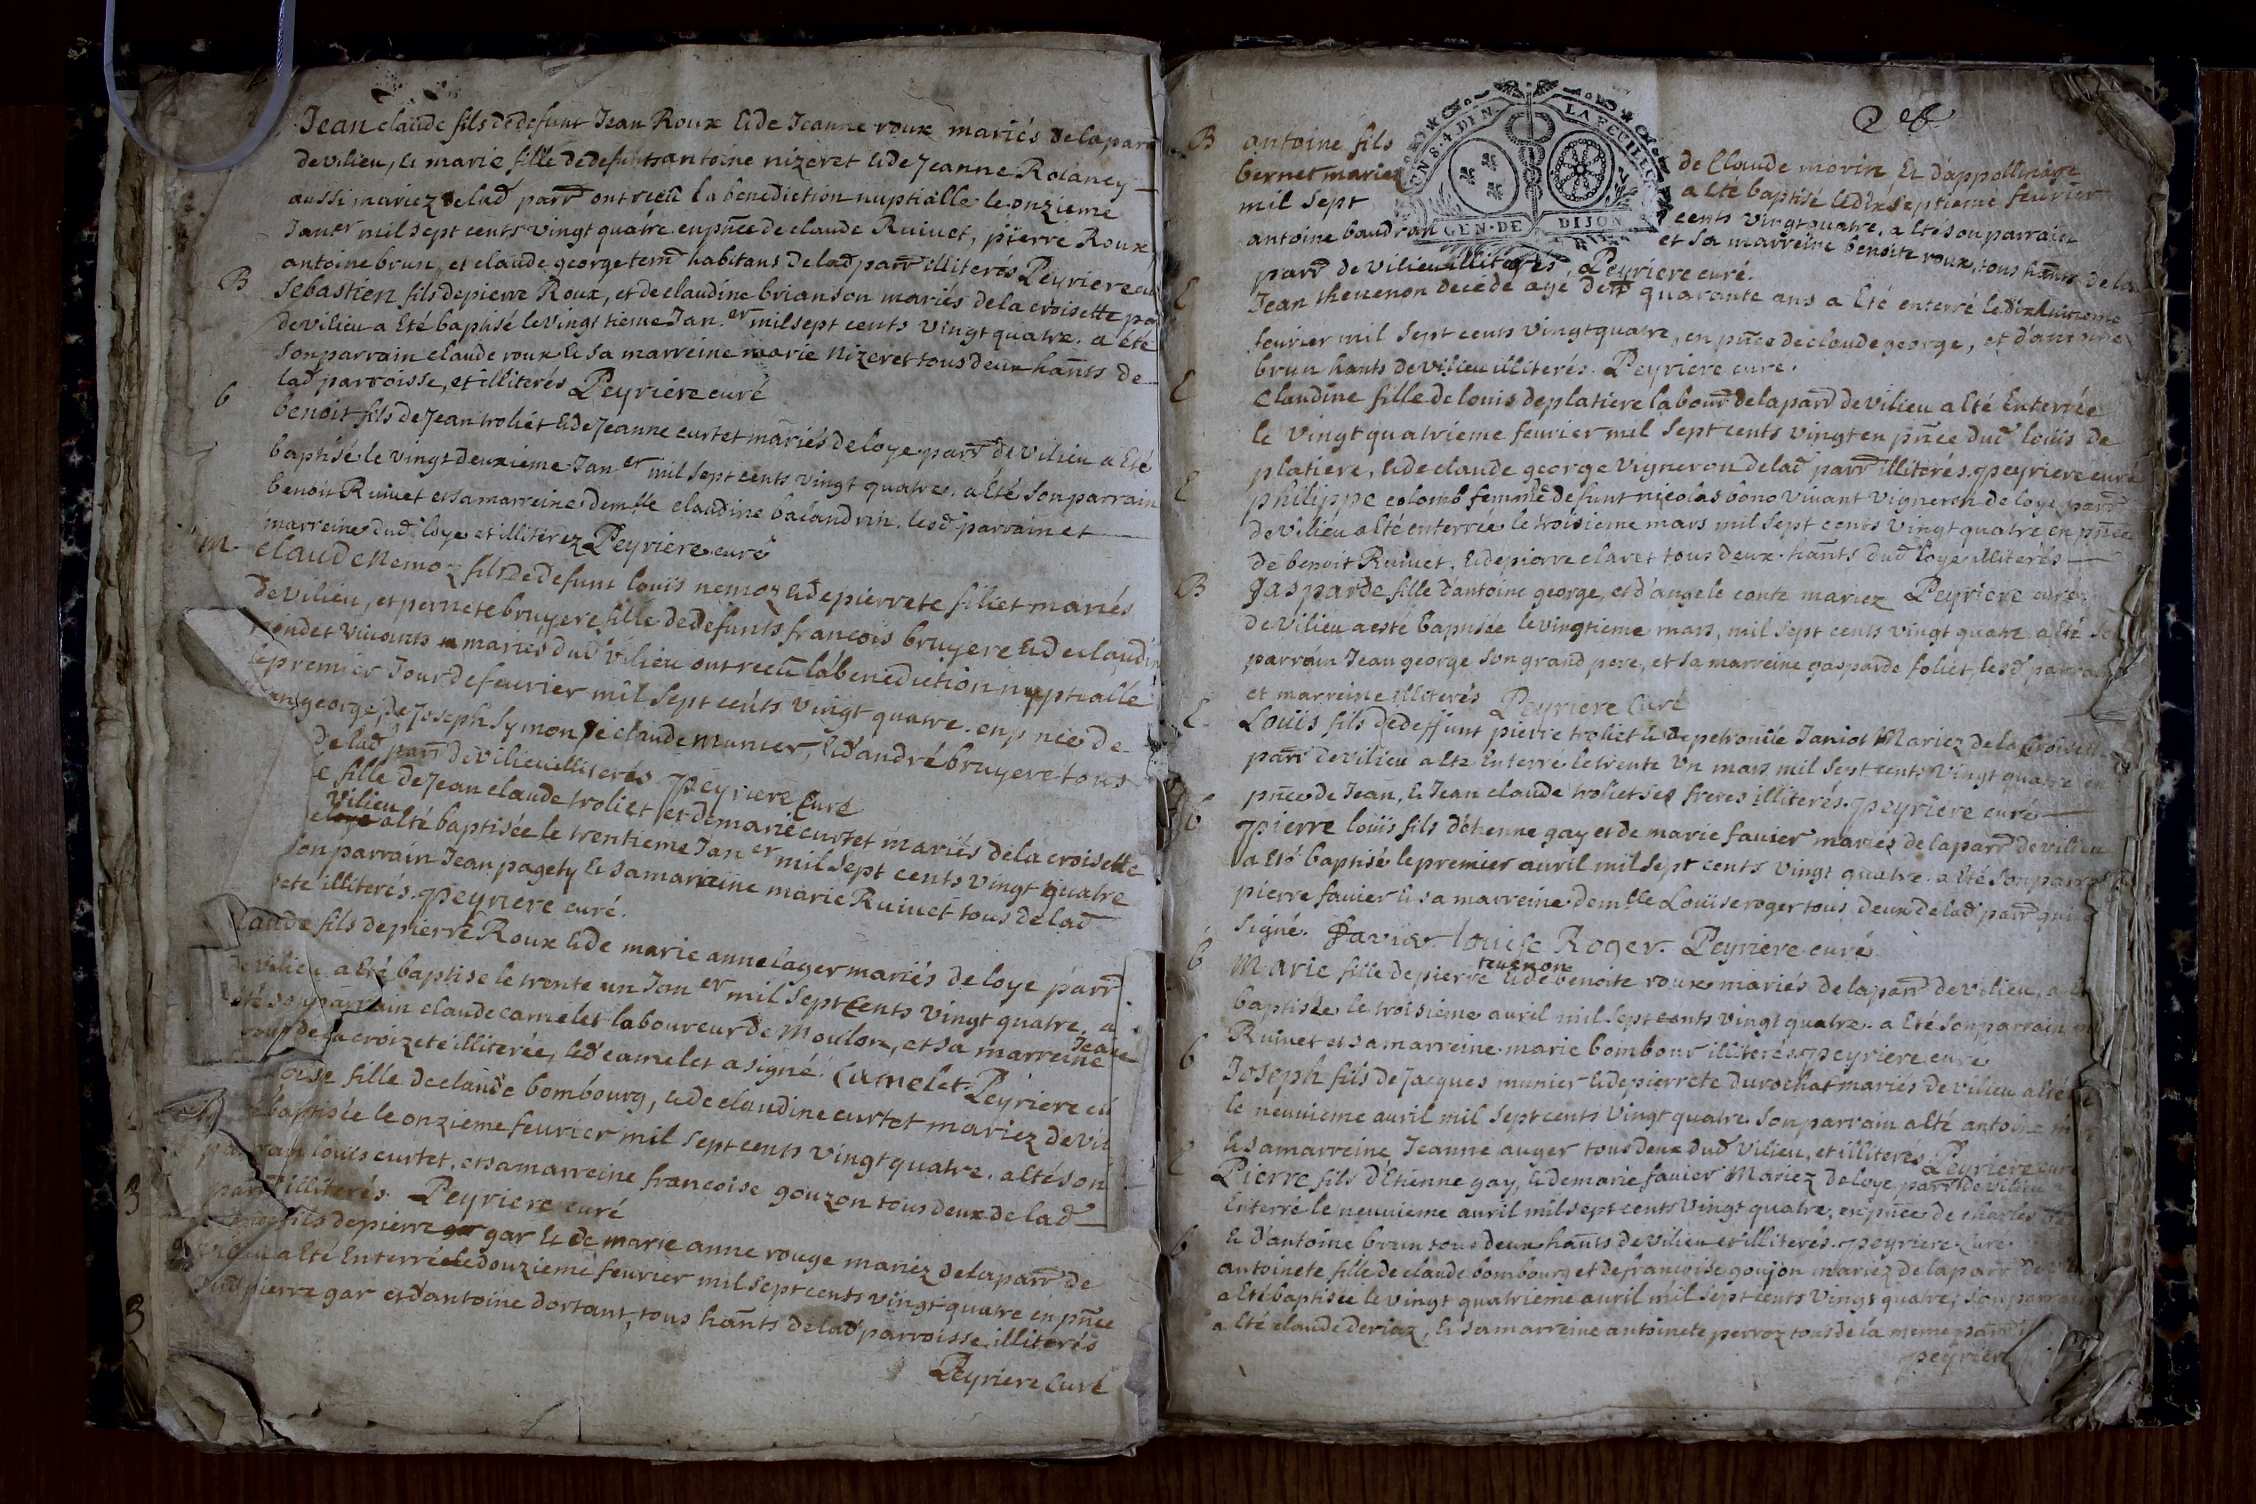 Jean claude fils de defunt Jean Roux & de Jeanne roux mariés de la parr
de vilieu, & marie fille de defunts antoine nizeret & de Jeanne Rolancy
aussi mariez de lad parr ont reçu la benediction nuptialle le onzieme
Janer mil sept cents vingt quatre en pnce de claude Ruivet, pierre Roux
antoine brun, et claude george tem habitans de lad parr illiterés Peyriere cu
B
Sebastien fils de pierre Roux, et de claudine brianson mariés de la croisette pa
de vilieu a Eté baptisé le vingttieme Jan.er mil sept cents vingt quatre. a été
son parrain claude roux & sa marreine marie Nizeret tous deux hants de
lad parroisse, et illiterés Peyriere curé
b
benoit fils de Jean troliet & de Jeanne curtet mariés de loye parr de vilieu a Eté
baptisé le vingt deuxieme Jan er mil sept cents vingt quatre. a Eté son parrain
benoit Ruivet et sa marreine demlle claudine balandrin. lesd parrain et
marreine dud loye et illiterez Peyriere curé
m
claude Nemoz fils de defunt louis nemoz & de pierrete filiet mariés
de vilieu, et pernete bruyere fille de defunts francois bruyere & de claudin
vivants mariés dud vilieu ont recu la benediction nuptialle
le premier Jour de fevrier mil sept cents vingt quatre. en pnce de
george, de Joseph Symon, de claude munier, & d'andré bruyere tous
de lad parr de vilieu illiterés Peyriere Curé
e fille de Jean claude troliet et de marie curtet mariés de la croisette
vilieu
a Eté baptisée le trentieme Jan er mil sept cents vingt quatre
son parrain Jean pagety & sa marreine marie Ruivet tous de lad
illiterés. Peyriere curé.
laude fils de pierre Roux & de marie anne lager mariés de loye parr
de vilieu a Eté baptise le trente un Jan er mil sept Cents vingt quatre. a
été son parrain claude camelet laboureur de Moulon, et sa marreine Jeane
roux de la croizete illiterée, led camelet a signé. Camelet. Peyriere cu
oise fille de claude bombourg, & de claudine curtet mariez de vil
baptisée le onzieme fevrier mil sept cents vingt quatre. a Eté son
parrain louis curtet, et sa marreine francoise gouzon tous deux de lad
parr illiterés. Peyriere curé
fils de pierre gar & de marie anne rouge mariez de la parr de
vilieu a Eté Enterré le douzieme fevrier mil sept cents vingt quatre en pnce
dud pierre gar et d'antoine dortant, tous hants de lad parroisse illiterés
Peyriere Curé
B
antoine fils de Claude morin, & d'appollinaire
bernet mariez a Eté baptisé le dix septieme fevrier
mil sept cents vingt quatre. a Eté son parrain
antoine baudran et sa marreine benoite roux, tous hants de la
GEN·DE DIJON
parr de vilieu illiterés, Peyriere curé.
E
Jean thevenon decede agé de quarante ans a Eté enterré le dix huitieme
fevrier mil sept cents vingt quatre, en pnce de claude george, et d'antoine
brun hants de vilieu illiterés. Peyriere curé.
E
Claudine fille de louis deplatiere labour de la parr de vilieu a Eté Enterrée
le vingt quatrieme fevrier mil sept cents vingt en pnce dud louis de
platiere, & de claude george vigneron de lad parr illiterés. Peyriere curé
E
philippe colomb femme defunt nicolas bono vivant vigneron de loye parr
de vilieu a Eté enterrée le troisieme mars mil sept cents vingt quatre en pnce
de benoit Ruivet, & de pierre claret tous deux hants dud loye illiterés
B
Gasparde fille d'antoine george, et d'angele conte mariez Peyriere curé
de vilieu a esté baptisée le vingtieme mars, mil sept cents vingt quatre a Eté so
parrain Jean george son grand pere, et sa marreine gasparde foliet, lesd parrain
et marreine illiterés Peyriere Curé
E
Louis fils de deffunt pierre troliet & de petronile Janiot Mariez de la Croisette
parr de vilieu a Eté Enterré le trente un mars mil sept cents vingt quatre en
pnce de Jean, & Jean claude troliet ses freres illiterés. Peyriere curé
b
Pierre louis fils d'étienne gay et de marie favier mariés de la parr de vilieu
a Eté baptisé le premier avril mil sept cents vingt quatre. a Eté son parrain
pierre favier & sa marreine demlle Louise roger tous deux de lad parr qui
signé. Favier louise Roger. Peyriere curé
b
Marie fille de pierre tevenon & de benoite roux mariés de la parr de vilieu, a
baptisée le troisieme avril mil sept cents vingt quatre. a Eté son parrain
Ruivet et sa marreine marie bombour illiterés. Peyriere curé
b
Joseph fils de Jacques munier & de pierrete durochat mariés de vilieu a Eté
le neuvieme avril mil sept cents vingt quatre. Son parrain a Eté antoine
& sa marreine Jeanne auger tous deux dud vilieu, et illiteres. Peyriere curé
E
Pierre fils d'Etienne gay, & de marie favier Mariez de loye parr de vilieu
Enterré le neuvieme avril mil sept cents vingt quatre, en pnce de charles
& d'antoine brun tous deux hants de vilieu et illiterés. Peyriere Curé
b
antoinete fille de claude bombourg et de francoise goujon mariez de la parr de
a Eté baptisée le vingt quatrieme avril mil sept cents vingt quatre, son parrain
a Eté claude deriaz, & sa marreine antoinete perroz tous de la meme parr
peyriere